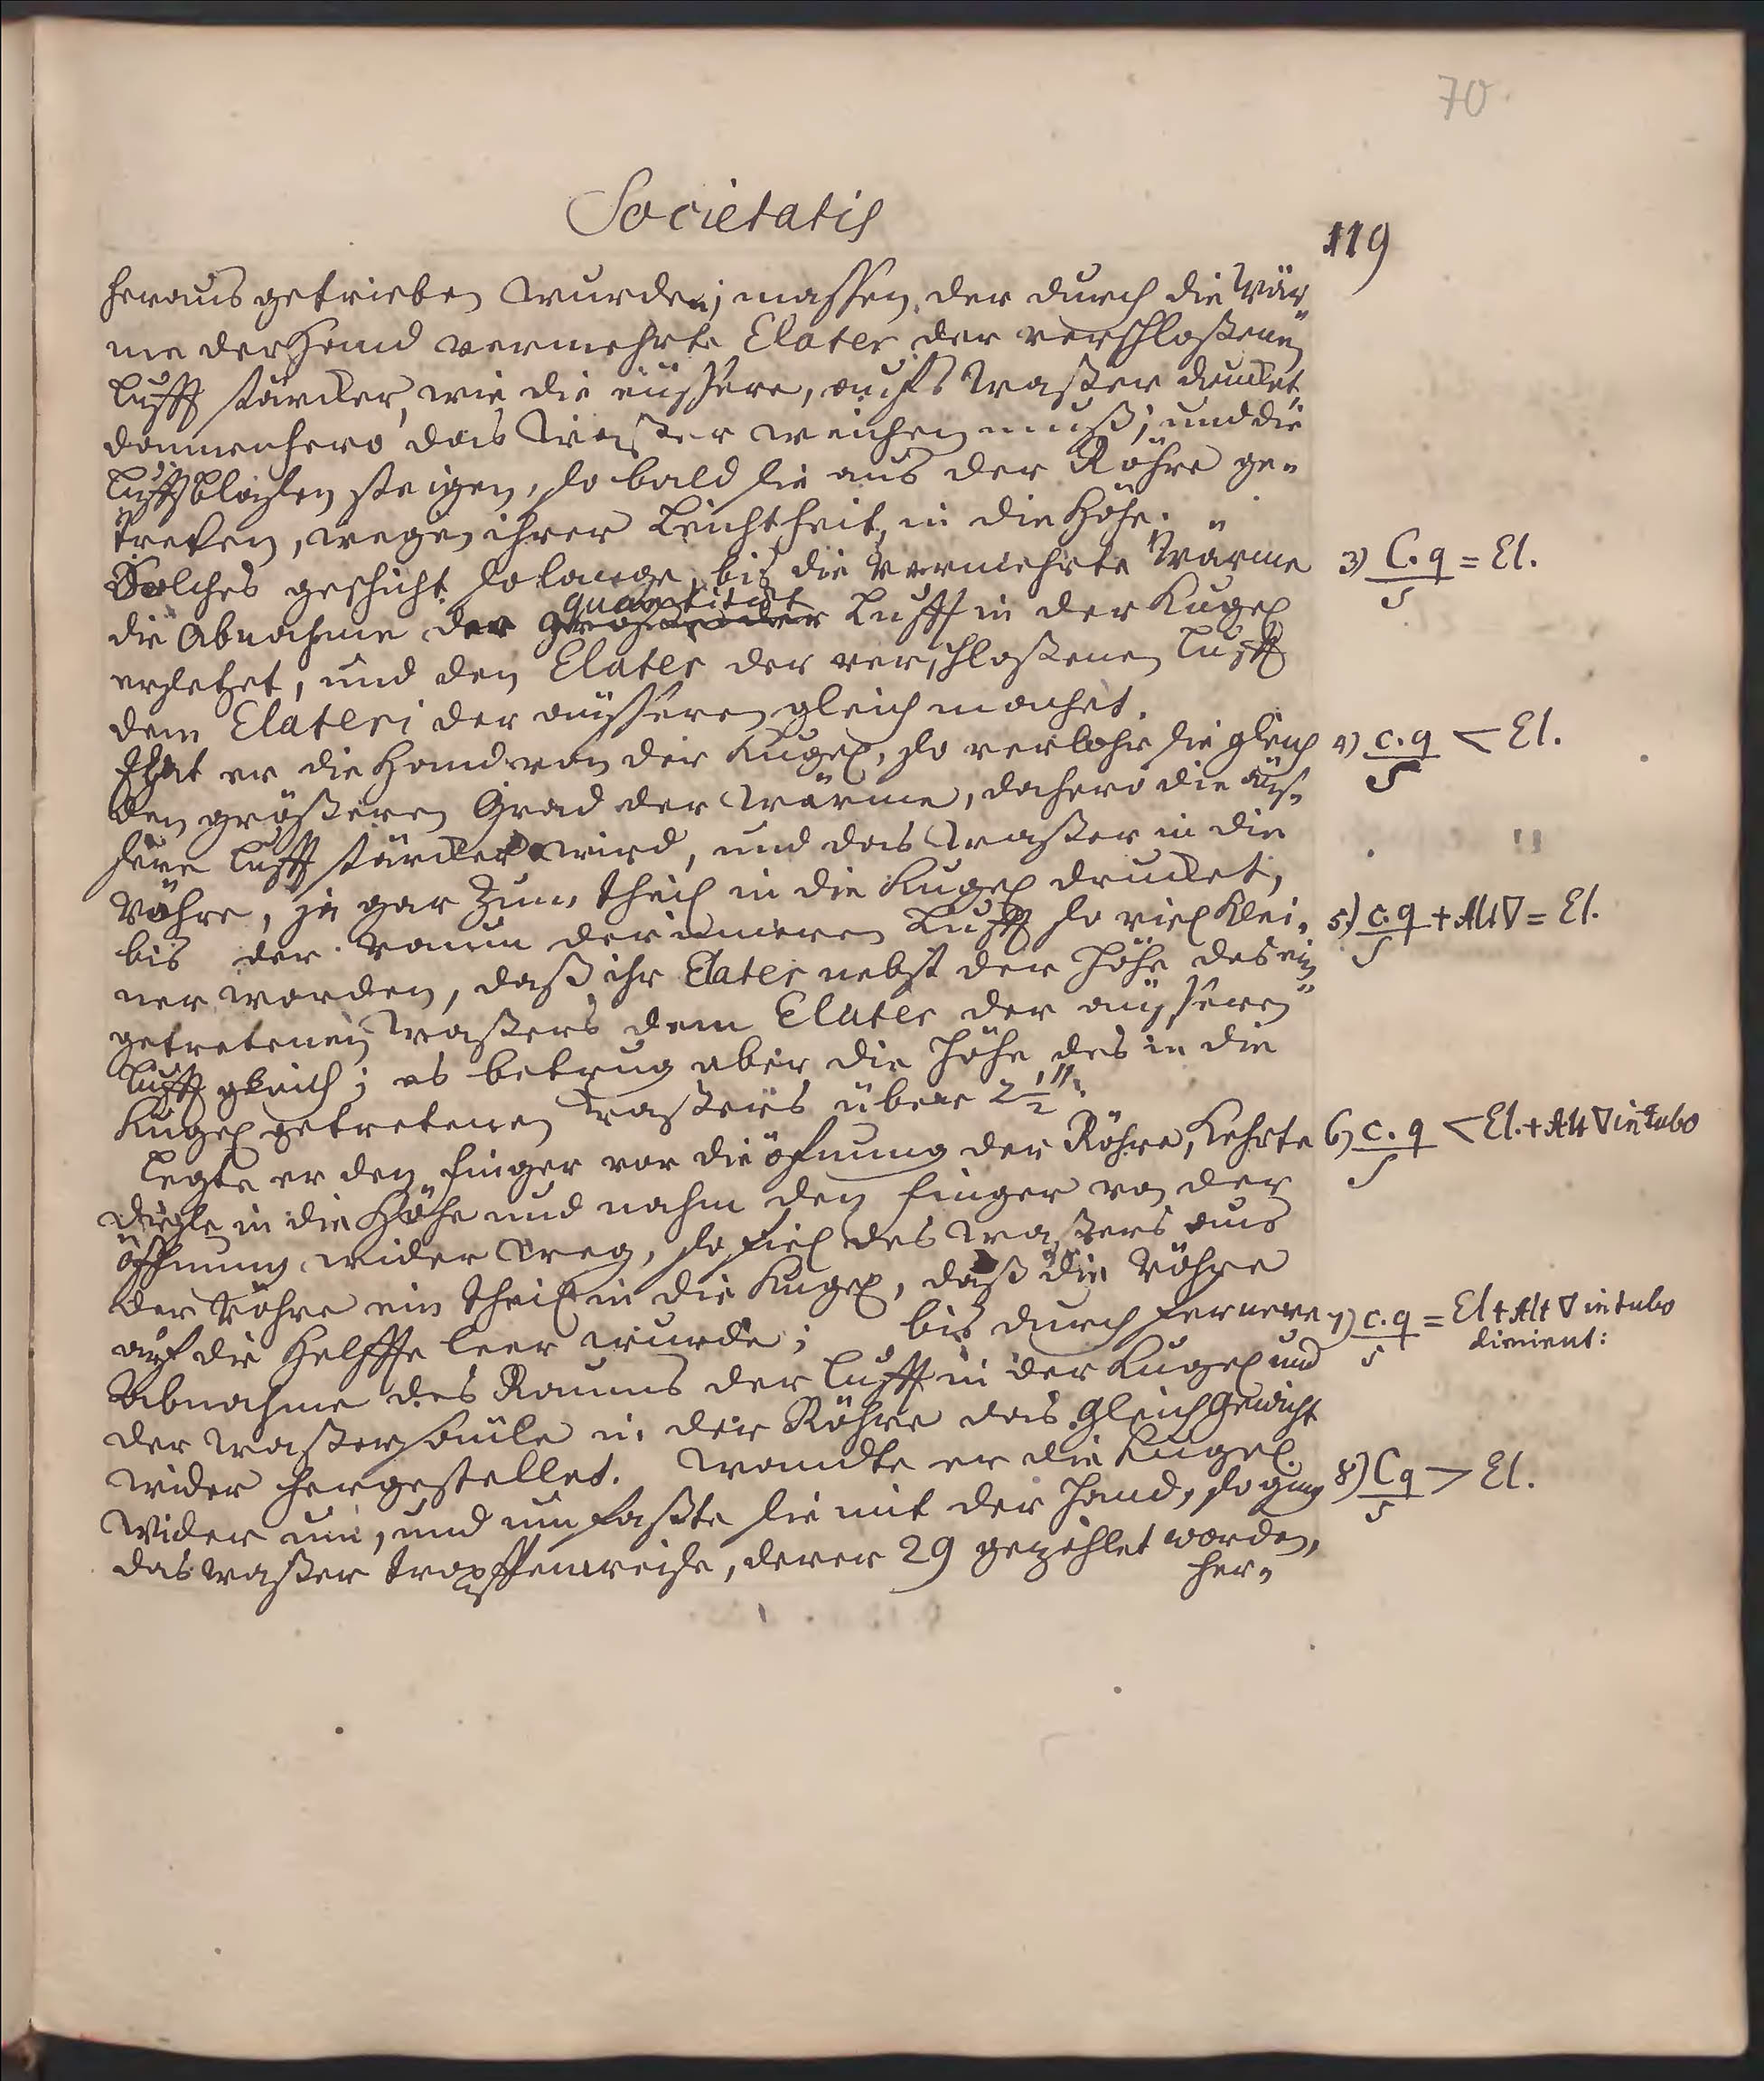 70
Societatis
119
herausgetrieben wurden; massen der durch die Wär„
me der Hand vermehrte Elater der verschloßenen
Lufft stärcker, wie die eüssere, aufs Waßer drucket,
dannenhero das Waßer weichen muß; und die
Lufftblasen steigen, so bald sie aus der Röhre ge„
tretten, wegen ihrer Leichtheit, in die Höhe.
Solches geschicht so lange, bis die vermehrte Wärme
3) C.q/S = El.
quantität
die Abnahme der Lufft in der Kugel
ersetzet, und den Elater der verschloßenen Lufft
dem Elateri der aüsseren gleich machet.
That er die Hand von der Kugel, so verlohr sie gleich
4) c.q/S < El.
den größeren Grad der Wärme, dahero die aüs„
sere Lufft stärcker wird, und das Waßer in die
Röhre, ja gar zum theil in die Kugel drucket,
bis der Raum der inneren Lufft so viel klei„
5) c.q/S + Alt ▽ = El.
ner worden, daß ihr Elater nebst der Höhe des ein„
getretenen Waßers dem Elater der aüsseren
Lufft gleich; es betrug aber die Höhe des in die
Kugel getretenen Waßers über 2 1/2''.
Legte er den finger vor die öfnung der Röhre, kehrte
6) c.q/S < El. + Alt ▽ in tubo
dieselbe in die Höhe und nahm den finger von der
öffnung wider weg, so fiel des Waßers aus
der Röhre ein theil in die Kugel, daß die Röhre
auf die Helffte leer wurde; bis durch fernere
7) c.q/S = El + Alt ▽ in tubo
dimient:
Abnahme des Raums der Lufft in der Kugel und
der Waßersaüle in der Röhre das Gleichgewicht
wider hergestellet. Wandte er die Kugel
wider um, und umfaßte sie mit der Hand, so gieng
8) Cq/S > El.
das Waßer tropffenweise, derer 29 gezehlet worden,
her„